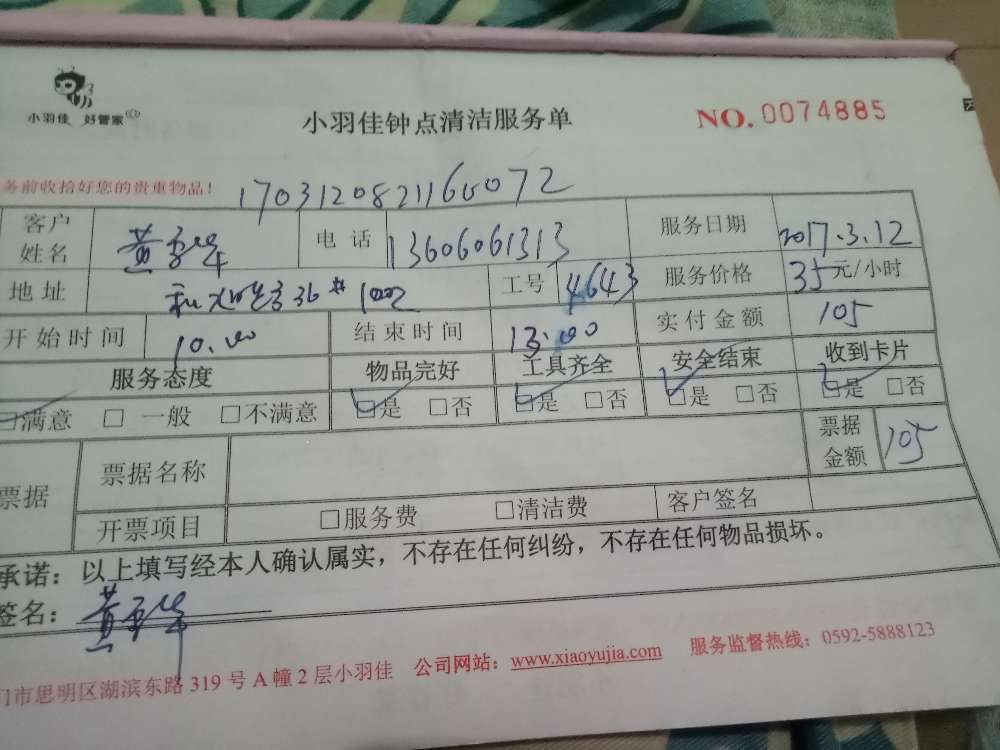 小羽佳 好管家
小羽佳钟点清洁服务单
NO. 0074885
务前收拾好您的贵重物品!
1703120821160072
客户姓名 黄 电话 13606061313 服务日期 2017.3.12
地址 36# 1002 工号 4643 服务价格 35元/小时
开始时间 10.00 结束时间 13:00 实付金额 105
服务态度 物品完好 工具齐全 安全结束 收到卡片
☑满意 □ 一般 □不满意 ☑是 □否 ☑是 □否 ☑是 □否 ☑是 □否
票据 票据名称 票据金额 105
开票项目 □服务费 □清洁费 客户签名
承诺：以上填写经本人确认属实，不存在任何纠纷，不存在任何物品损坏。
签名：黄
门市思明区湖滨东路 319 号 A 幢 2 层小羽佳 公司网站：www.xiaoyujia.com 服务监督热线：0592-5888123